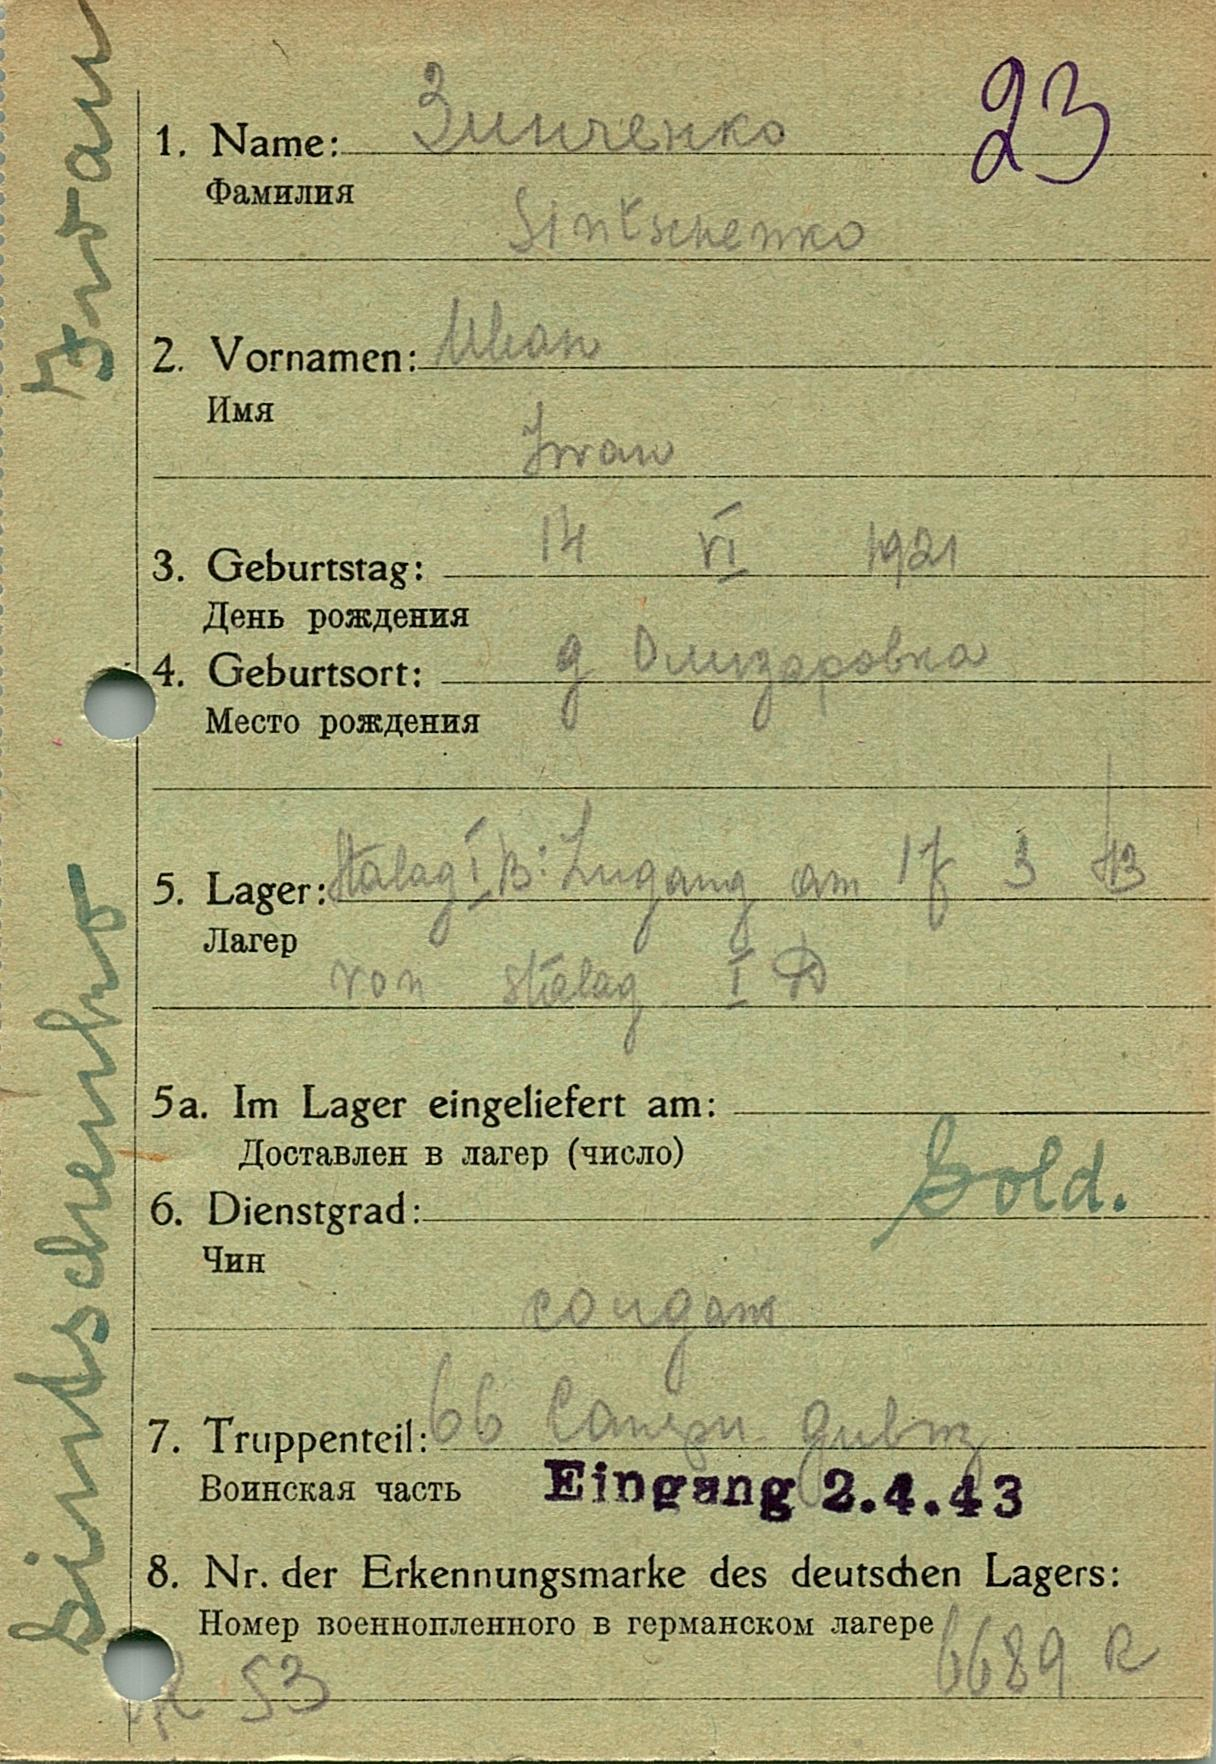 23
1. Name: Зинченко
Фамилия
Sintschenko
2. Vornamen: Иван
Имя
Iwan
3. Geburtstag: 14 VI 1921
День рождения
4. Geburtsort: д Олизаровка
Место рождения
5. Lager: Stalag I B: Zugang am 17 3 43
Лагер
von Stalag I D
5a. Im Lager eingeliefert am:
Доставлен в лагер (число)
Sold.
6. Dienstgrad:
Чин
солдат
7. Truppenteil: 66
Воинская часть
Eingang 2.4.43
8. Nr. der Erkennungsmarke des deutschen Lagers:
Номер военнопленного в германском лагере
6689 R
53
Sintschenko Iwan